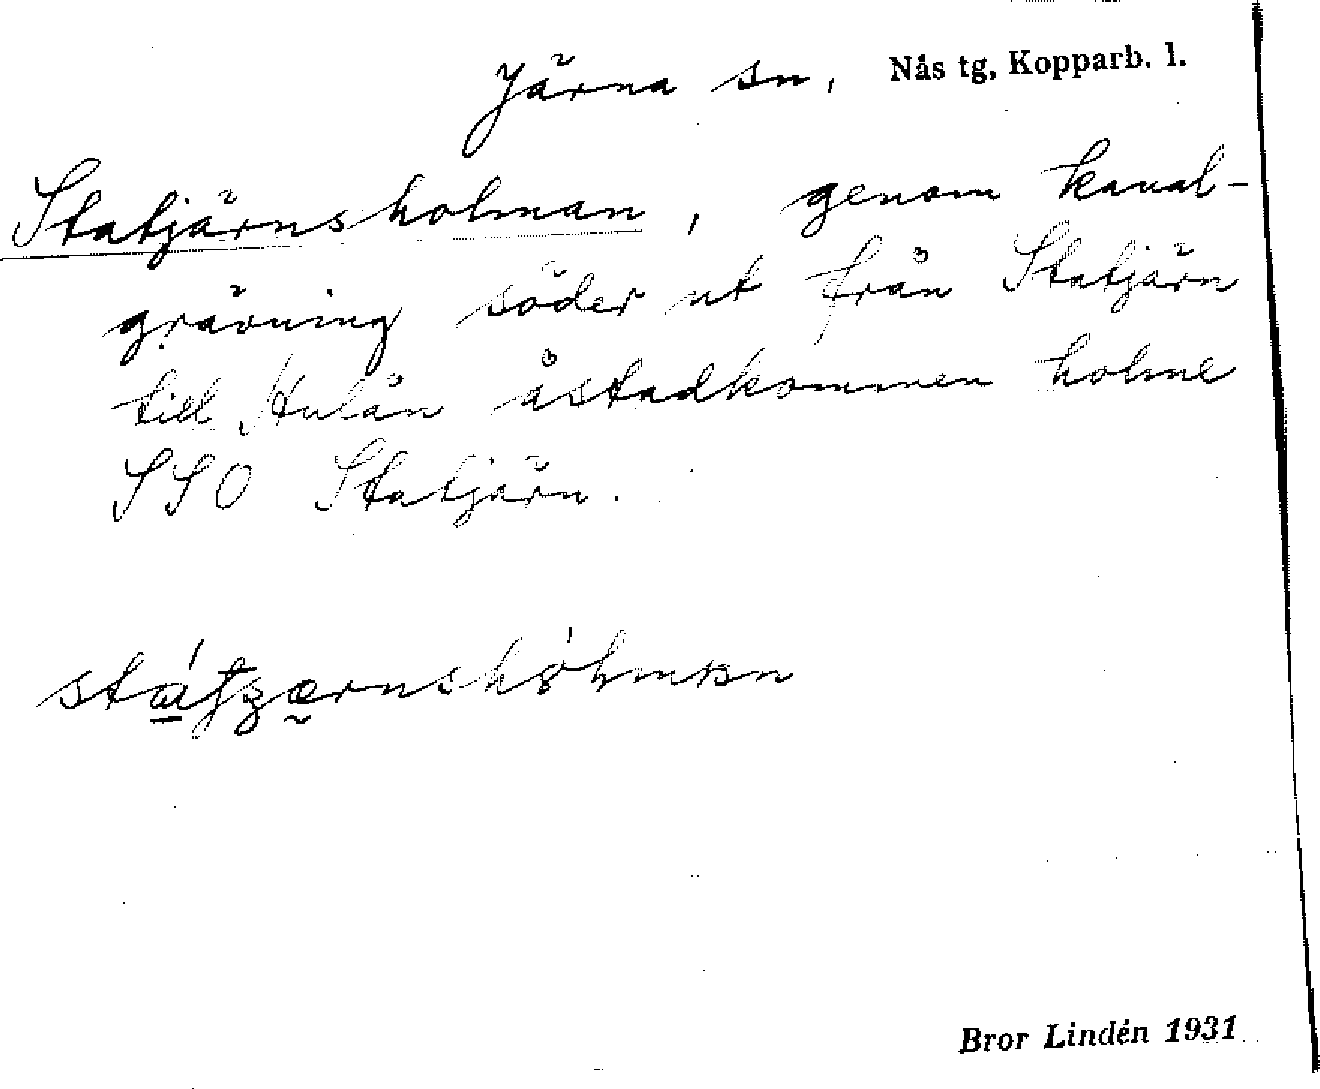 Järna sn, Nås tg, Kopparb. l.
Statjärnsholman, genom kanal-
grävning söder ut från Statjärn
till Hulån åstadkommen holme
SSO Statjärn.
Bror Lindén 1931